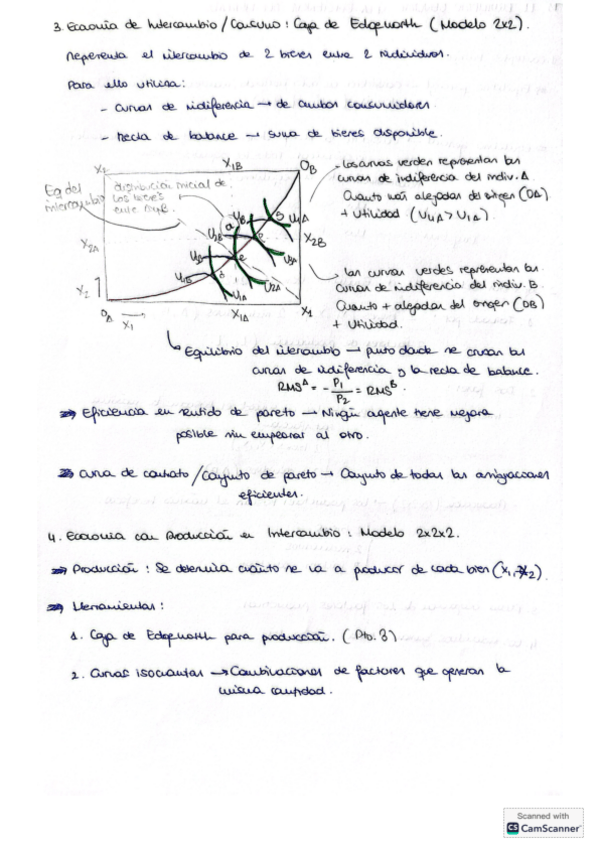 3. Economía de Intercambio / Consumo: Caja de Edgeworth (Modelo 2x2).
Representa el intercambio de 2 bienes entre 2 individuos.
Para ello utiliza:
- Curvas de indiferencia → de ambos consumidores.
- Recta de balance → suma de bienes disponible.
X2
X1B
OB
Eq del intercambio
distribución inicial de los bienes entre A y B.
X2A
X2B
X2
OA
X1
X1A
X1
U1A
U2A
U3A
U4A
- Las curvas verdes representan las
curvas de indiferencia del indiv. A
Cuanto más alejadas del origen (OA)
+ Utilidad (U4A > U1A).
- Las curvas verdes representan las
Curvas de indiferencia del indiv. B.
Cuanto + alejadas del origen (OB)
+ Utilidad.
Equilibrio del intercambio → punto donde se cruzan las
curvas de indiferencia y la recta de balance.
RMSᴬ = - P1/P2 = RMSᴮ.
⇒ Eficiencia en sentido de pareto → Ningún agente tiene mejora
posible sin empeorar al otro.
⇒ Curva de contrato / Conjunto de pareto → Conjunto de todas las asignaciones
eficientes.
4. Economía con Producción en Intercambio: Modelo 2x2x2.
⇒ Producción: Se determina cuánto se va a producir de cada bien (X1, X2).
⇒ Herramientas:
1. Caja de Edgeworth para producción. (Pto. 3)
2. Curvas isocuantas → Combinaciones de factores que generan la
misma cantidad.
Scanned with
CS CamScanner